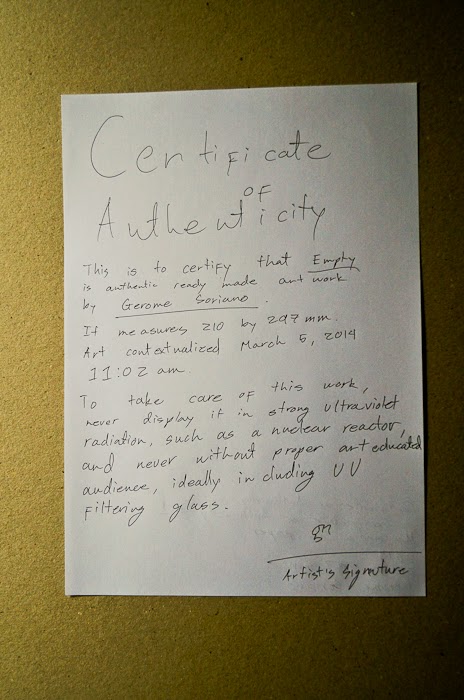 Certificate
of
Authenticity
This is to certify that Empty
is authentic ready made art work
by Gerome Soriano.
It measures 210 by 297 mm.
Art contextualized March 5, 2014
11:02 am.
To take care of this work,
never display it in strong ultraviolet
radiation, such as a nuclear reactor,
and never without proper art educated
audience, ideally including UV
filtering glass.
Artist's Signature